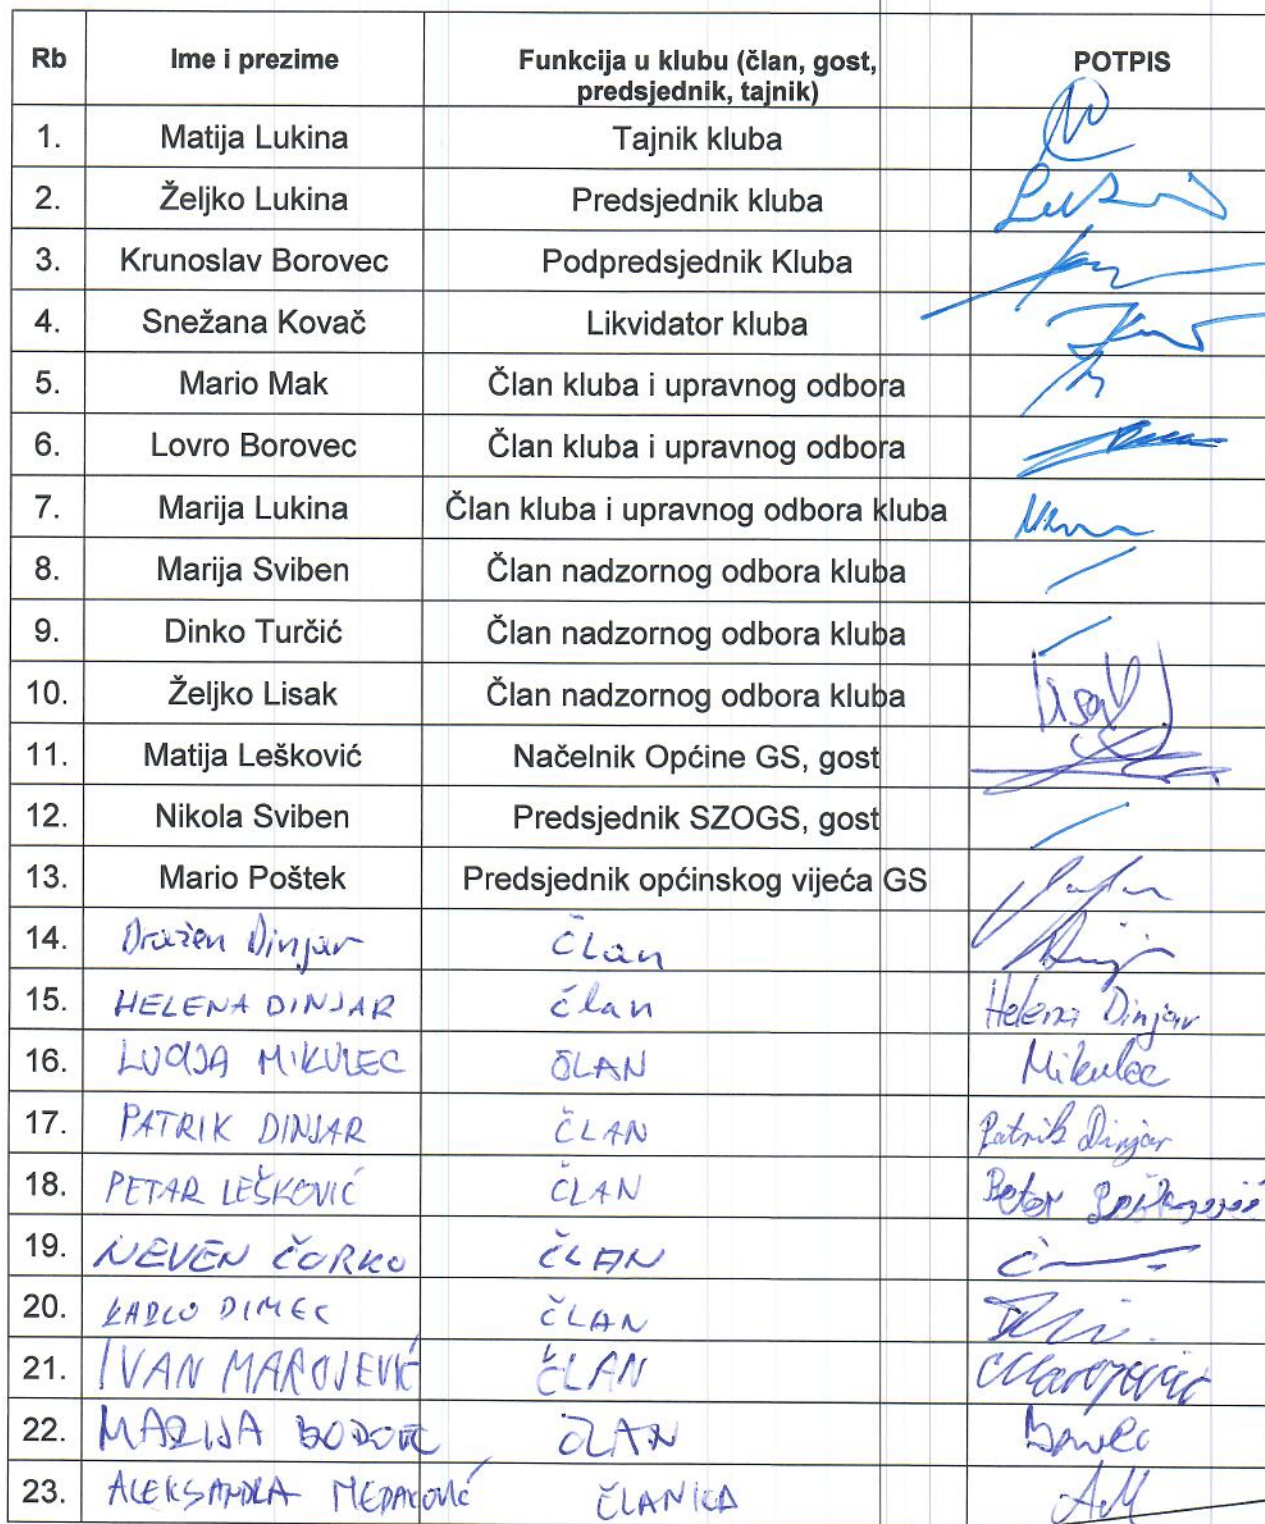 Rb Ime i prezime Funkcija u klubu (član, gost, POTPIS
predsjednik, tajnik)
1. Matija Lukina Tajnik kluba
2. Željko Lukina Predsjednik kluba
3. Krunoslav Borovec Podpredsjednik Kluba
4. Snežana Kovač Likvidator kluba
5. Mario Mak Član kluba i upravnog odbora
6. Lovro Borovec Član kluba i upravnog odbora
7. Marija Lukina Član kluba i upravnog odbora kluba
8. Marija Sviben Član nadzornog odbora kluba
9. Dinko Turčić Član nadzornog odbora kluba
10. Željko Lisak Član nadzornog odbora kluba Lisak
11. Matija Lešković Načelnik Općine GS, gost
12. Nikola Sviben Predsjednik SZOGS, gost
13. Mario Poštek Predsjednik općinskog vijeća GS
14. Dražen Dinjar Član
15. HELENA DINJAR član Helena Dinjar
16. LUCIJA MIKULEC ČLAN Mikulec
17. PATRIK DINJAR ČLAN Patrik Dinjar
18. PETAR LEŠKOVIĆ ČLAN Petar Lešković
19. NEVEN ČORKO ČLAN
20. KARLO DIMEC ČLAN
21. IVAN MAROJEVIĆ ČLAN Marojević
22. MARIJA ČLAN
23. ALEKSANDRA MEDAKOVIĆ ČLANICA AM